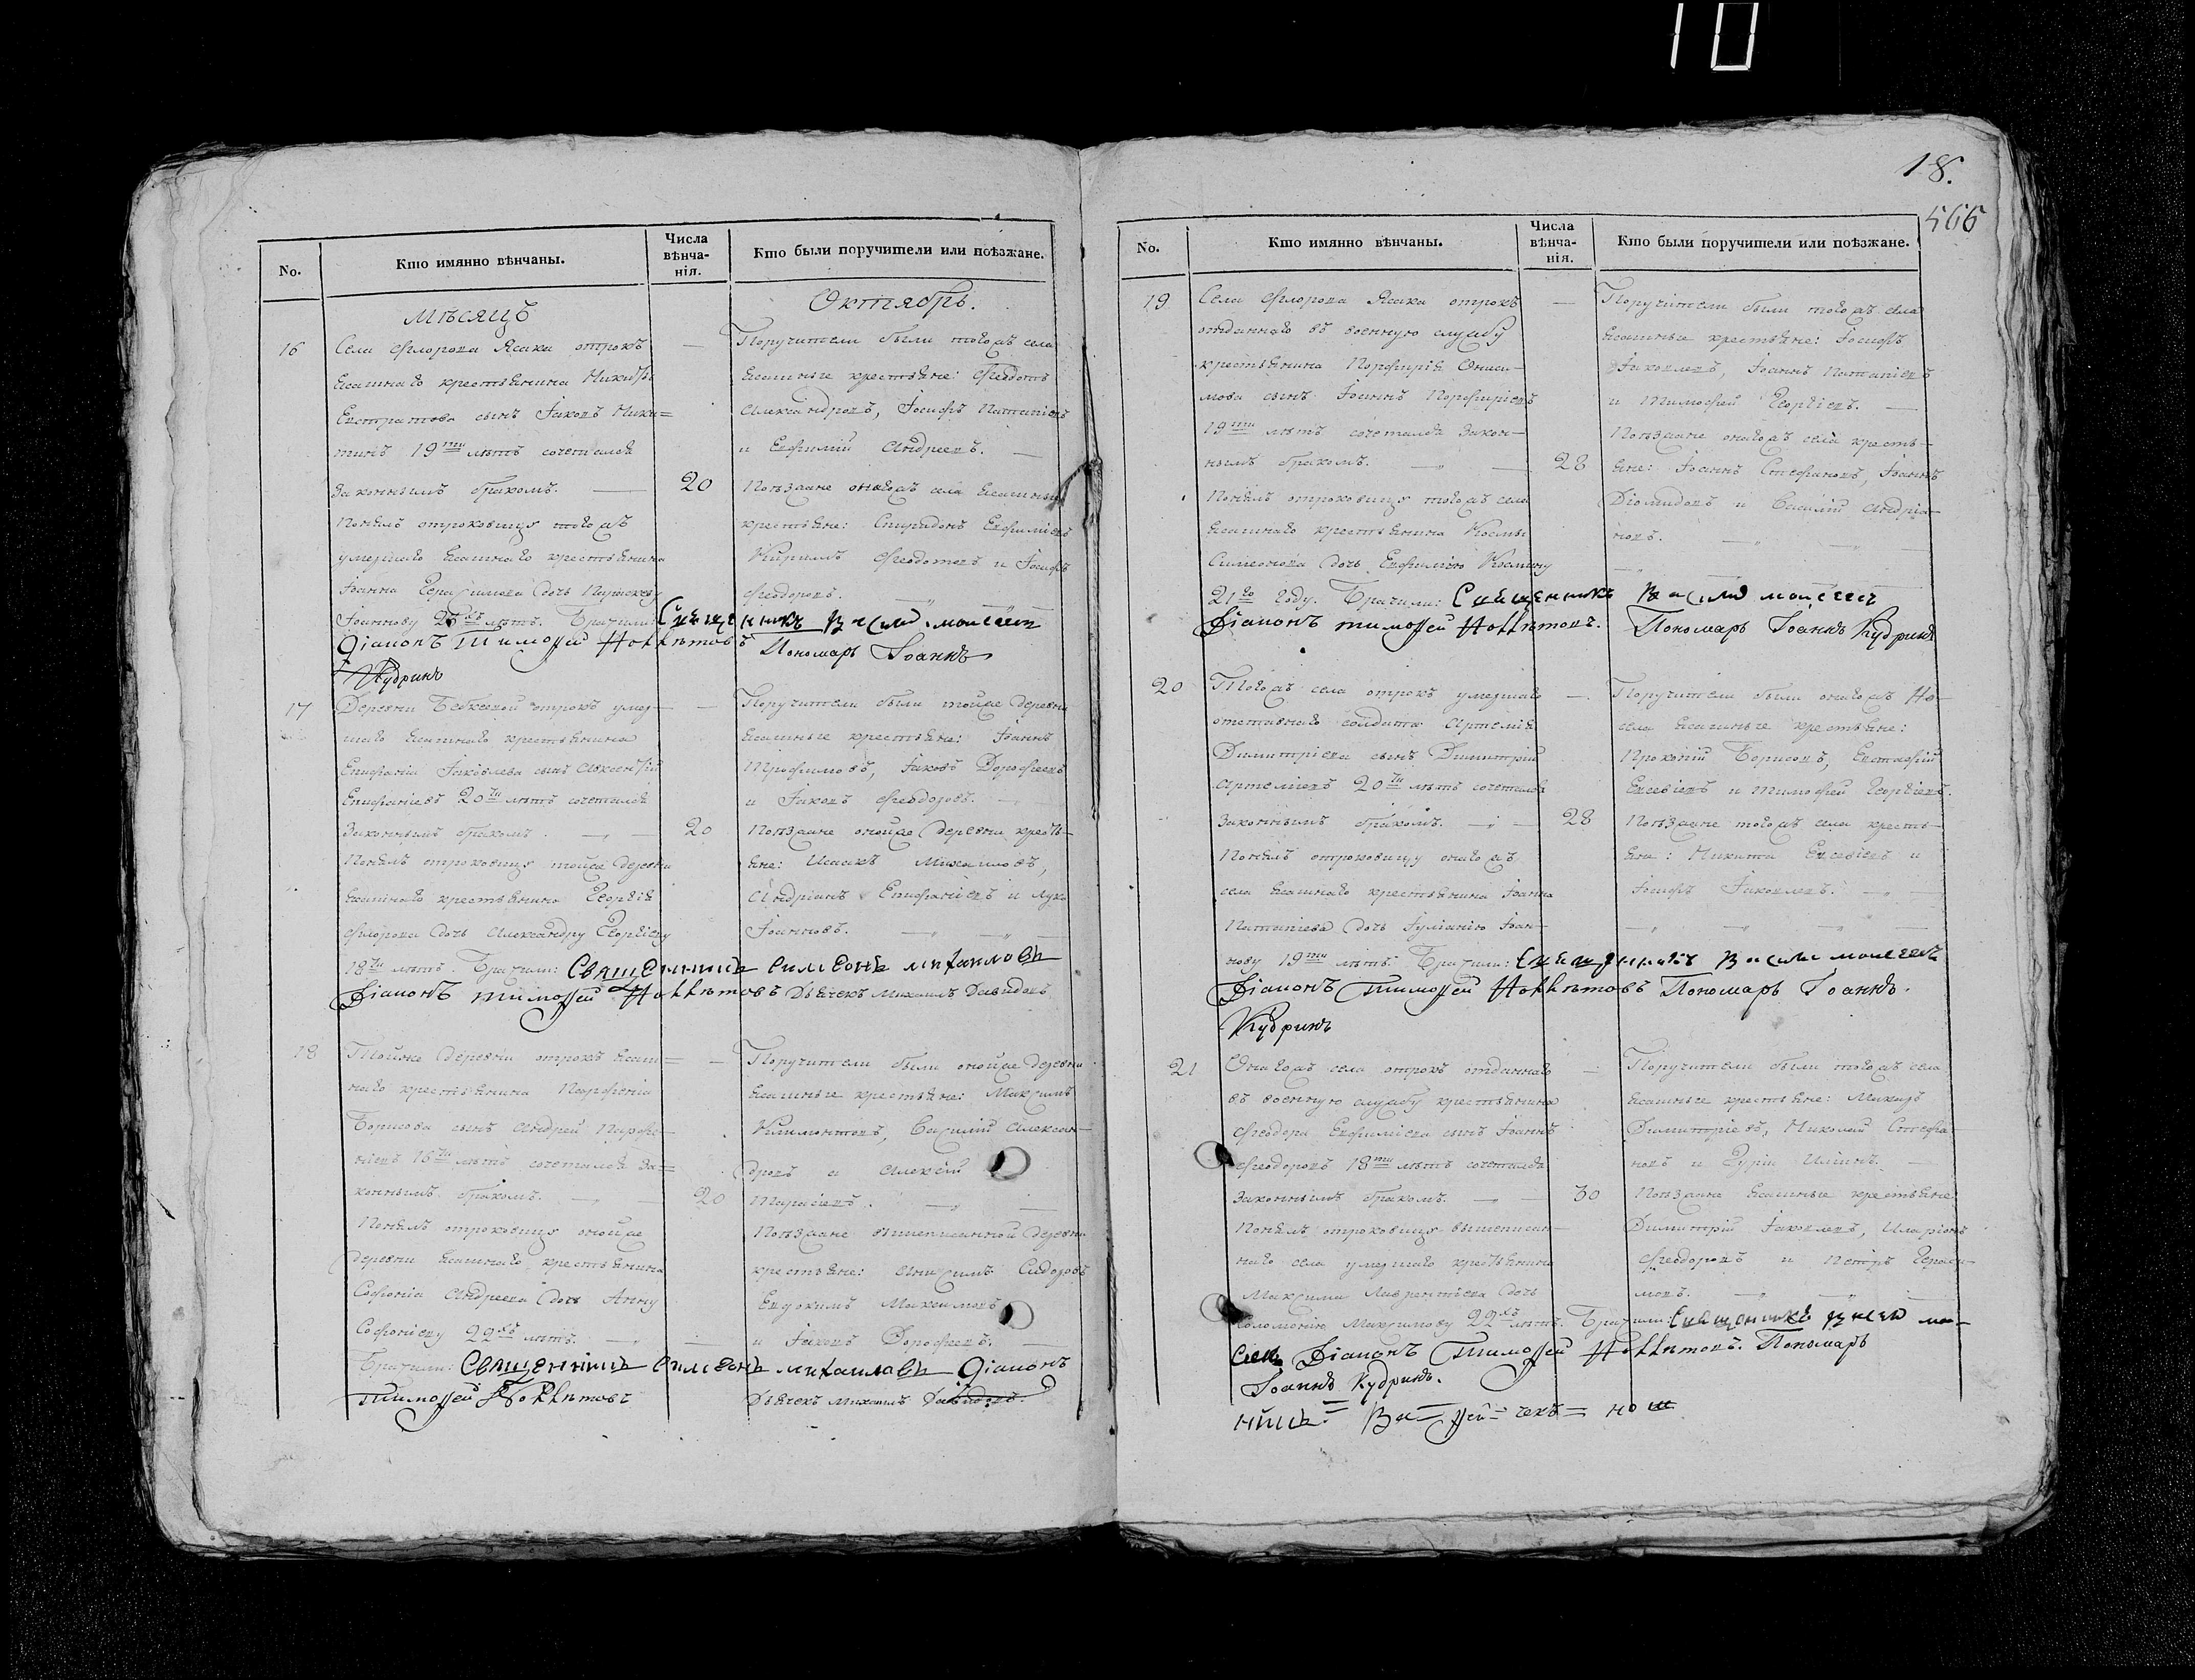 10
18.
566
No.
Кто имянно вѣнчаны.
Числа вѣнча-нія.
Кто были поручители или поѣзжане.
Мѣсяцъ
Октябрь.
16
Села Флорова Ясака отрокъ
ясашнаго крестьянина Никиты
Евстратова сынъ Іаковъ Ники=
тинъ 19ти лѣтъ сочетался
Законнымъ бракомъ.
Понялъ отроковицу тогожъ
умершаго ясашнаго крестьянина
Іоанна Герасимова дочь Параскеву
Іоаннову лѣтъ. Брачили: Священникъ Васили Моисеевъ
Діаконъ Тимофей Пономарь Іоаннъ
Кудринъ
20
Поручители были тогожъ села
ясашные крестьяне: Феодотъ
Александровъ, Іосифъ Патапіевъ
и Евфимій Андреевъ.
Поѣзжане онагожъ села ясашные
крестьяне: Спиридонъ Евфиміевъ
Кирилъ Феодотовъ и Іосифъ
Феодоровъ.
17
Деревни отрокъ умер-
шаго ясашнаго крестьянина
Епифанія Іаковлева сынъ Авксентій
Епифаніевъ 20ти лѣтъ сочетался
Законнымъ бракомъ.
Понялъ отроковицу тойже деревни
ясашнаго крестьянина Георгія
Флорова дочь Александру Георгіеву
18ти лѣтъ. Брачили: Священникъ Симеонъ Михаиловъ
Діаконъ Тимофей Дьячекъ Михаилъ Давидовъ
20
Поручители были тойже деревни
ясашные крестьяне: Іоаннъ
Трофимовъ, Іаковъ Дорофеевъ
и Іаковъ Феодоровъ.
Поѣзжане онойже деревни кресть-
яне: Исаакъ Михаиловъ,
Андріанъ Епифаніевъ и Лука
Іоанновъ.
18
Тойже деревни отрокъ ясаш=
наго крестьянина Парфенія
Борисова сынъ Андрей Парфе-
ніевъ 16ти лѣтъ сочетался за=
коннымъ бракомъ.
Понялъ отроковицу онойже
деревни ясашнаго крестьянина
Софонія Андреева дочь Анну
Софоніеву 22хъ лѣтъ.
Брачили: Священникъ Симеонъ Михаиловъ Діаконъ
Тимофей Дьячекъ Михаилъ Давидовъ.
20
Поручители были онойже деревни
ясашные крестьяне: Максимъ
Климонтовъ, Василій Алексан-
дровъ и Алексій
Тарасіевъ.
Поѣзжане вышеписанной деревни
крестьяне: Сидоровъ
Евдокимъ Максимовъ
и Іаковъ Дорофеевъ.
No.
Кто имянно вѣнчаны.
Числа вѣнча-нія.
Кто были поручители или поѣзжане.
19
Села Флорова Ясака отрокъ
отданнаго въ военную службу
крестьянина ПорфиріяОниси-
мова сынъ Іоаннъ Порфиріевъ
19ти лѣтъ сочетался Закон-
нымъ бракомъ.
Понялъ отроковицу тогожъ села
ясашнаго крестьянина Космы
Симеонова дочь Евфимію Космину
21го году. Брачили: Священникъ Васили Моисеевъ
Діаконъ Тимофей Пономарь Іоаннъ Кудринъ
28
Поручители были тогожъ села
ясашные крестьяне: Іосифъ
Іаковлевъ, Іоаннъ Патапіевъ
и Тимофей Георгіевъ.
Поѣзжане онагожъ села кресть-
яне: Іоаннъ Стефановъ, Іоаннъ
Діомидовъ и Василій Андріа-
новъ.
20
Тогожъ села отрокъ умершаго
отставнаго солдата Артемія
Димитріева сынъ Димитрій
Артеміевъ 20ти лѣтъ сочетался
Законнымъ бракомъ.
Понялъ отроковицу онагожъ
села ясашнаго крестьянина Іоанна
Патапіева дочь Іуліанію Іоан-
нову 19ти лѣтъ. Брачили: Священникъ Васили Моисеевъ
Діаконъ Тимофей Пономарь Іоаннъ
Кудринъ
28
Поручители были онагожъ
села ясашные крестьяне:
Прокопій Борисовъ, Евстафій
Евсевіевъ и Тимофей Георгіевъ.
Поѣзжане тогожъ села кресть-
яне: Никита Евсевіевъ и
Іосифъ Іаковлевъ.
21
Онагожъ села отрокъ отданнаго
въ военную службу крестьянина
Феодора Евфиміева сынъ Іоаннъ
Феодоровъ 18ти лѣтъ сочетался
Законнымъ бракомъ.
Понялъ отроковицу вышеписан-
наго села умершаго крестьянина
Максима Лаврентьева дочь
Соломонію Максимову 22хъ лѣтъ. Брачили: Священникъ Васили Мои-
сеевъ Діаконъ Тимофей Пономарь
Іоаннъ Кудринъ.
30
Поручители были тогожъ села
ясашные крестьяне: Макаръ
Димитріевъ, Николай Стефа-
новъ и Гурій Ильинъ.
Поѣзжане ясашные крестьяне
Димитрій Іаковлевъ, Иларіонъ
Феодоровъ и Петръ Гераси-
мовъ.